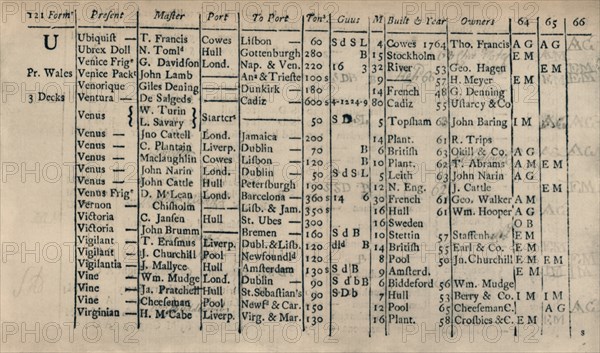 121 Formʳ Present Master Port To Port Tonˢ Guns M Built & Year Owners 64 65 66
U Ubiquist — T. Francis Cowes Lisbon — 60 S d S L 4 Cowes 1764 Tho. Francis A G A G
Ubrex Doll N. Tomˡ Hull Gottenburg 280 B 15 Stockholm E M
Venice Frigᵗ G. Davidson Lond. Nap. & Ven. 220 16 3 32 River 53 Geo. Hagen
Pr. Wales Venice Packᵗ John Lamb — Anᵃ & Trieste 100 s 9 57 H. Meyer E M
Venorique Giles Dening — Dunkirk 180 14 French 48 G. Denning
3 Decks Ventura — De Salgeds — Cadiz 600 s 4-1224-9 80 Cadiz 55 Ustarcy &Co
Venus { W. Turin } Startcrˢ — 50 S D 5 Topsham 63 John Baring I M A G
L. Savary
Venus — Jno Cattell Lond. Jamaica — 200 14 Plant. 61 R. Trips
Venus — C. Plantain Liverp. Dublin 70 B 6 British 63 Okill & Co. A G
Venus — Maclaughlin Cowes Lisbon 120 B 10 Plant. 62 T. Abrams A M E M
Venus — John Narin Lond. Dublin — 50 S d S L 5 Leith 63 John Narin A G
Venus — John Cattle Hull Petersburgh 190 12 N. Eng. 62 J. Cattle E M
Venus Frigᵗ D. McLean Lond. Barcelona — 360 s 14 6 30 French 61 Geo. Walker A M
Vernon Chisholm — — Lisb. & Jam. 350 s 16 Hull 61 Wm. Hooper A G
Victoria C. Jansen Hull St. Ubes — 300 16 Sweden O B
Victoria John Brumm — Bremen — 160 S d B 10 Stettin 57 Staffenha E M
Vigilant — T. Erasmus Liverp. Dubl.&Lisb. 120 dlᵈ B 14 British 55 Earl & Co. E M
Vigilant — J. Churchill Pool Newfoundlᵈ 120 8 Pool 50 Jn.Churchill E M E M
Vigilantia — J. Mallyce Hull Amsterdam 130 s S d B 9 Amsterd. E M
Vine — Wm. Mudge Lond. Dublin — 90 S d b B 6 Biddeford 56 Wm. Mudge
Vine — Ja. Pratchell Hull St.Sebastian's 90 S-D b 7 Hull 53 Berry & Co. I M I M
Vine — Cheeseman Pool Newfᵈ & Car. 150 12 Pool 65 CheesemanC. A G
Virginian — H. McCabe Liverp. Virg. & Mar. 130 16 Plant. 58 Crosbies &C. E M E M